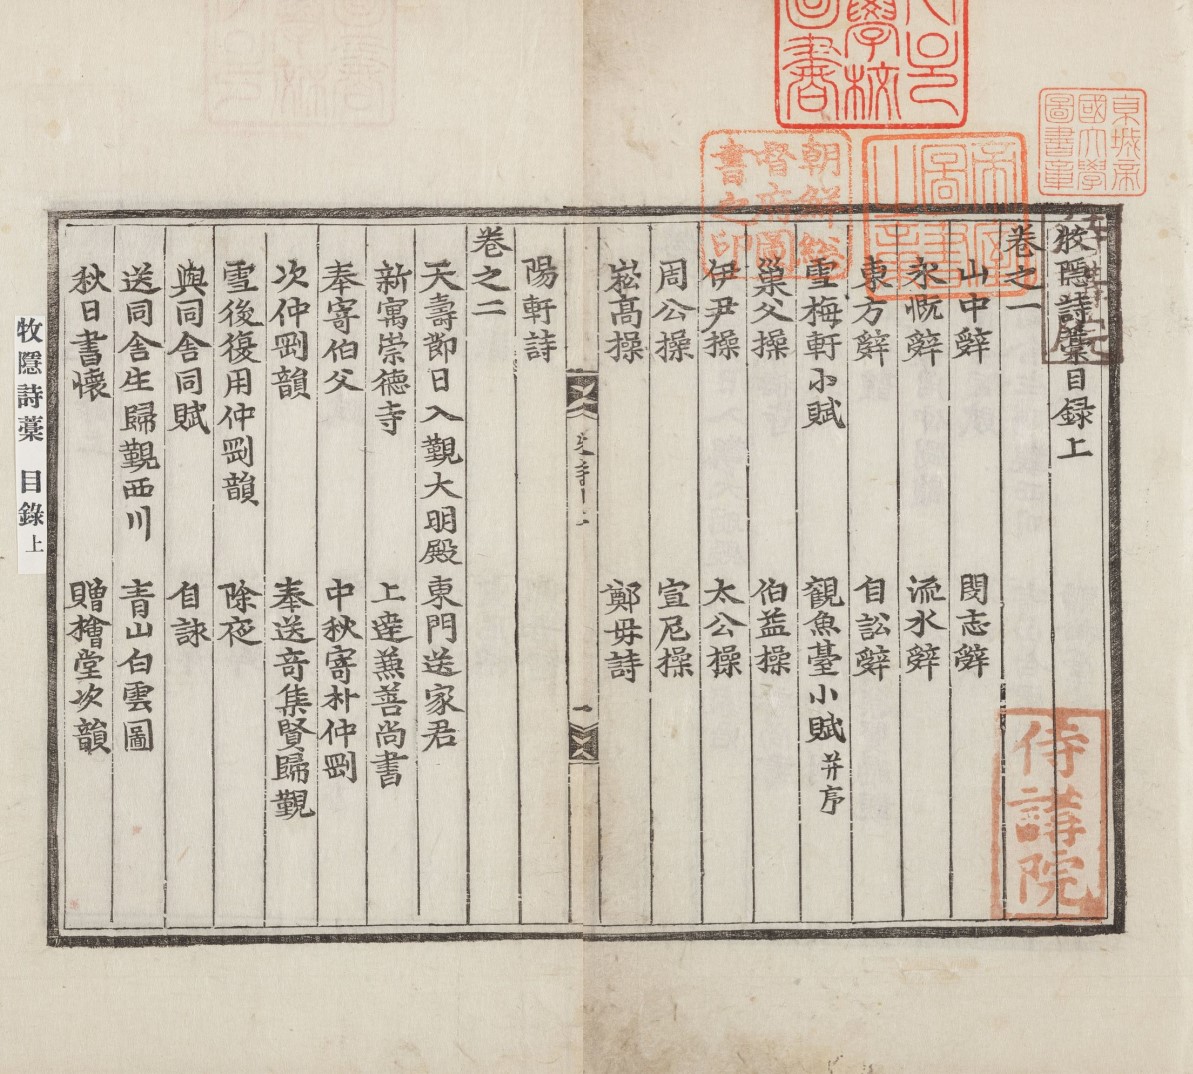 牧隱詩藁目録上
卷之一
山中辭 閔志辭
永慨辭 流水辭
東方辭 自訟辭
雪梅軒小賦 觀魚臺小賦并序
巢父操 伯益操
伊尹操 太公操
周公操 宣尼操
崧高操 鄭母詩
陽軒詩
卷之二
天壽節日入覲大明殿 東門送家君
新寓崇德寺 上逹兼善尚書
奉寄伯父 中秋寄朴仲剛
次仲剛韻 奉送竒集賢歸覲
雪後復用仲剛韻 除夜
與同舍同賦 自詠
送同舍生歸覲西川 青山白雲圖
秋日書懷 贈檜堂次韻
牧隱詩藁 目錄上
京城帝
國大學
圖書章
朝鮮総
督府圖
書之印
帝室
圖書
之章
侍講院